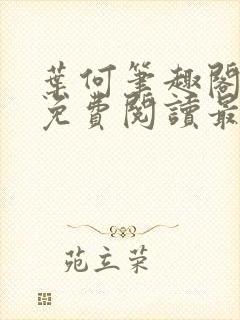 葉何筆趣閣
免費閱讀最
苑立荣